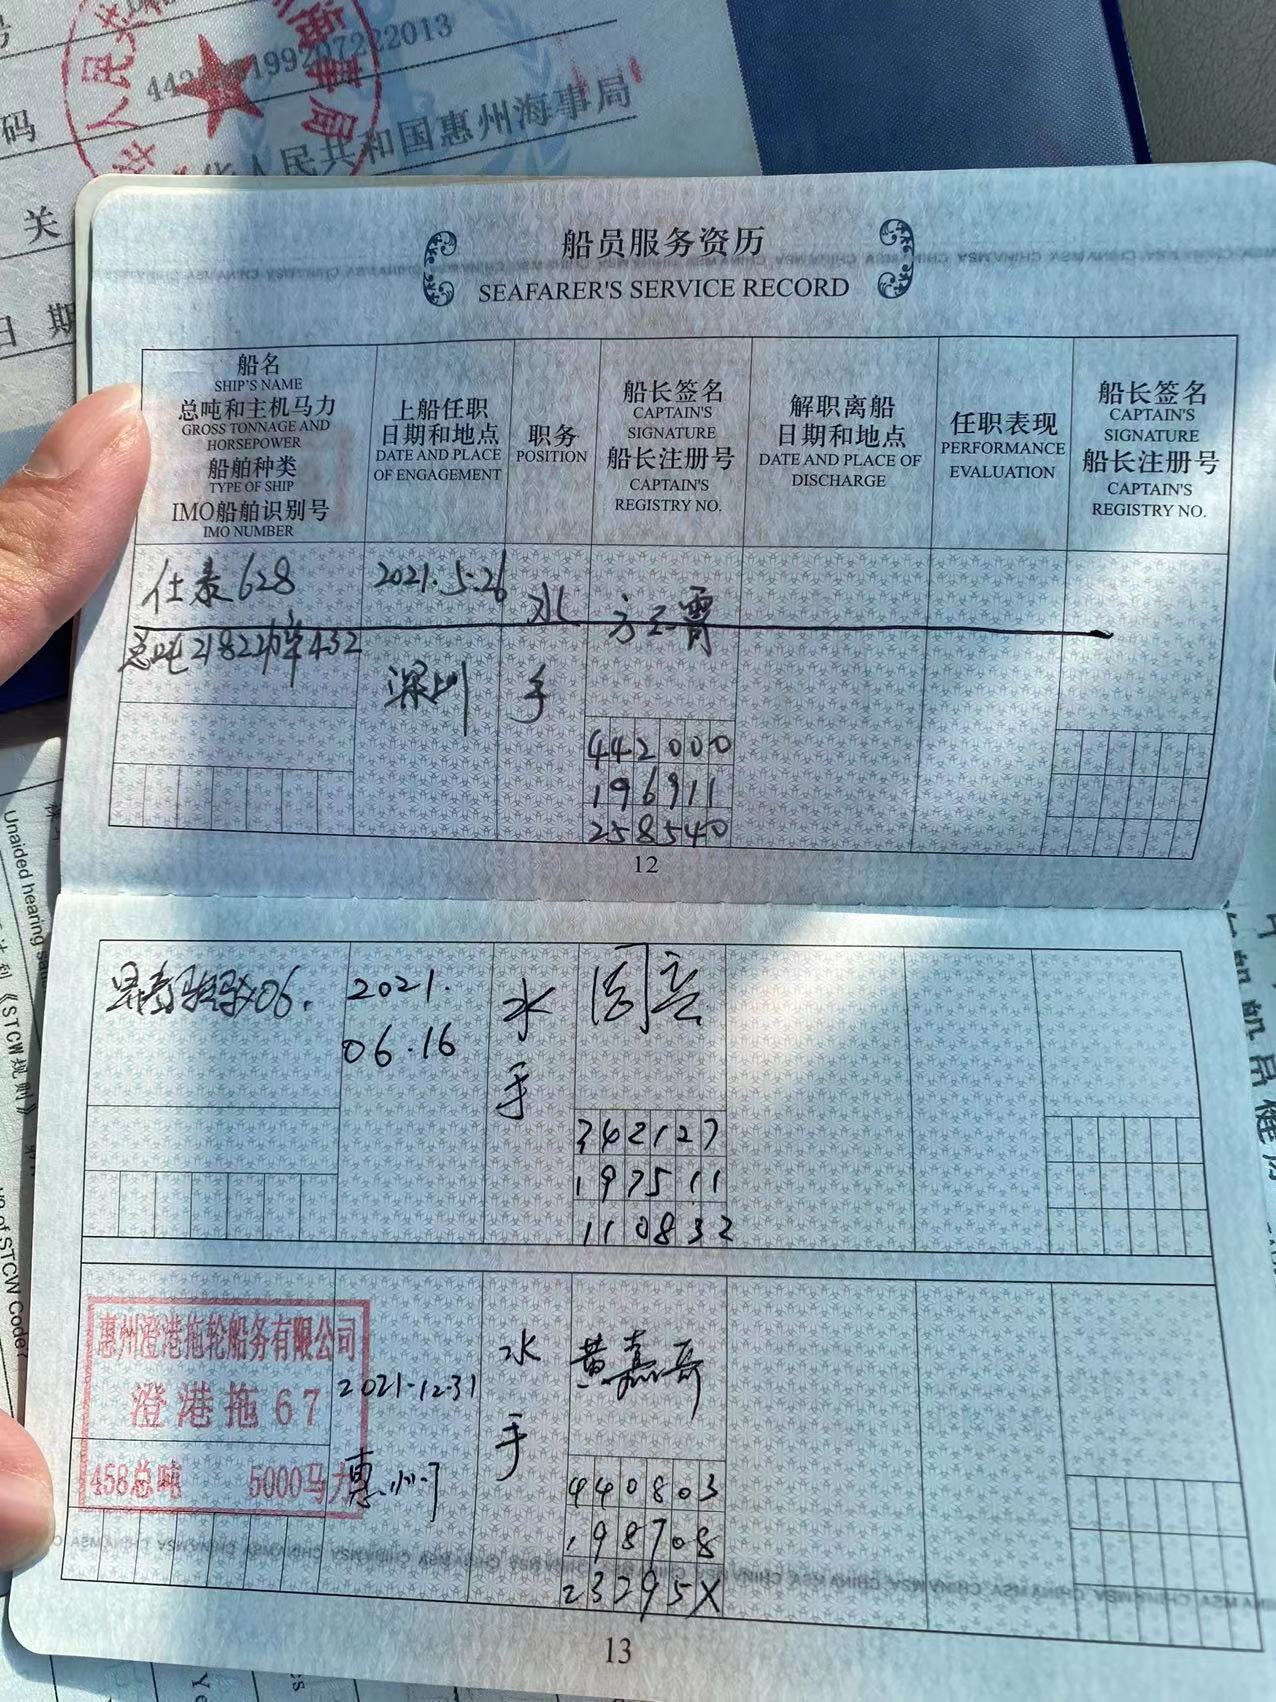 中华人民共和国惠州海事局
关
日 期
码
船员服务资历
SEAFARER'S SERVICE RECORD
船名
SHIP'S NAME
总吨和主机马力
GROSS TONNAGE AND
HORSEPOWER
船舶种类
TYPE OF SHIP
IMO船舶识别号
IMO NUMBER
上船任职
日期和地点
DATE AND PLACE
OF ENGAGEMENT
职务
POSITION
船长签名
CAPTAIN'S
SIGNATURE
船长注册号
CAPTAIN'S
REGISTRY NO.
解职离船
日期和地点
DATE AND PLACE OF
DISCHARGE
任职表现
PERFORMANCE
EVALUATION
船长签名
CAPTAIN'S
SIGNATURE
船长注册号
CAPTAIN'S
REGISTRY NO.
628
总吨2182功率432
2021.5.26
深圳
水
手
442000
196911
258540
12
06.
2021.
06.16
水
手
342127
197511
110832
惠州澄港拖轮船务有限公司
澄港拖67
458总吨 5000马力
2021-12-31
惠州
水
手
黄嘉哥
440803
198708
23295X
13
Unaided hearing
《STCW规则》
of STCW Code?